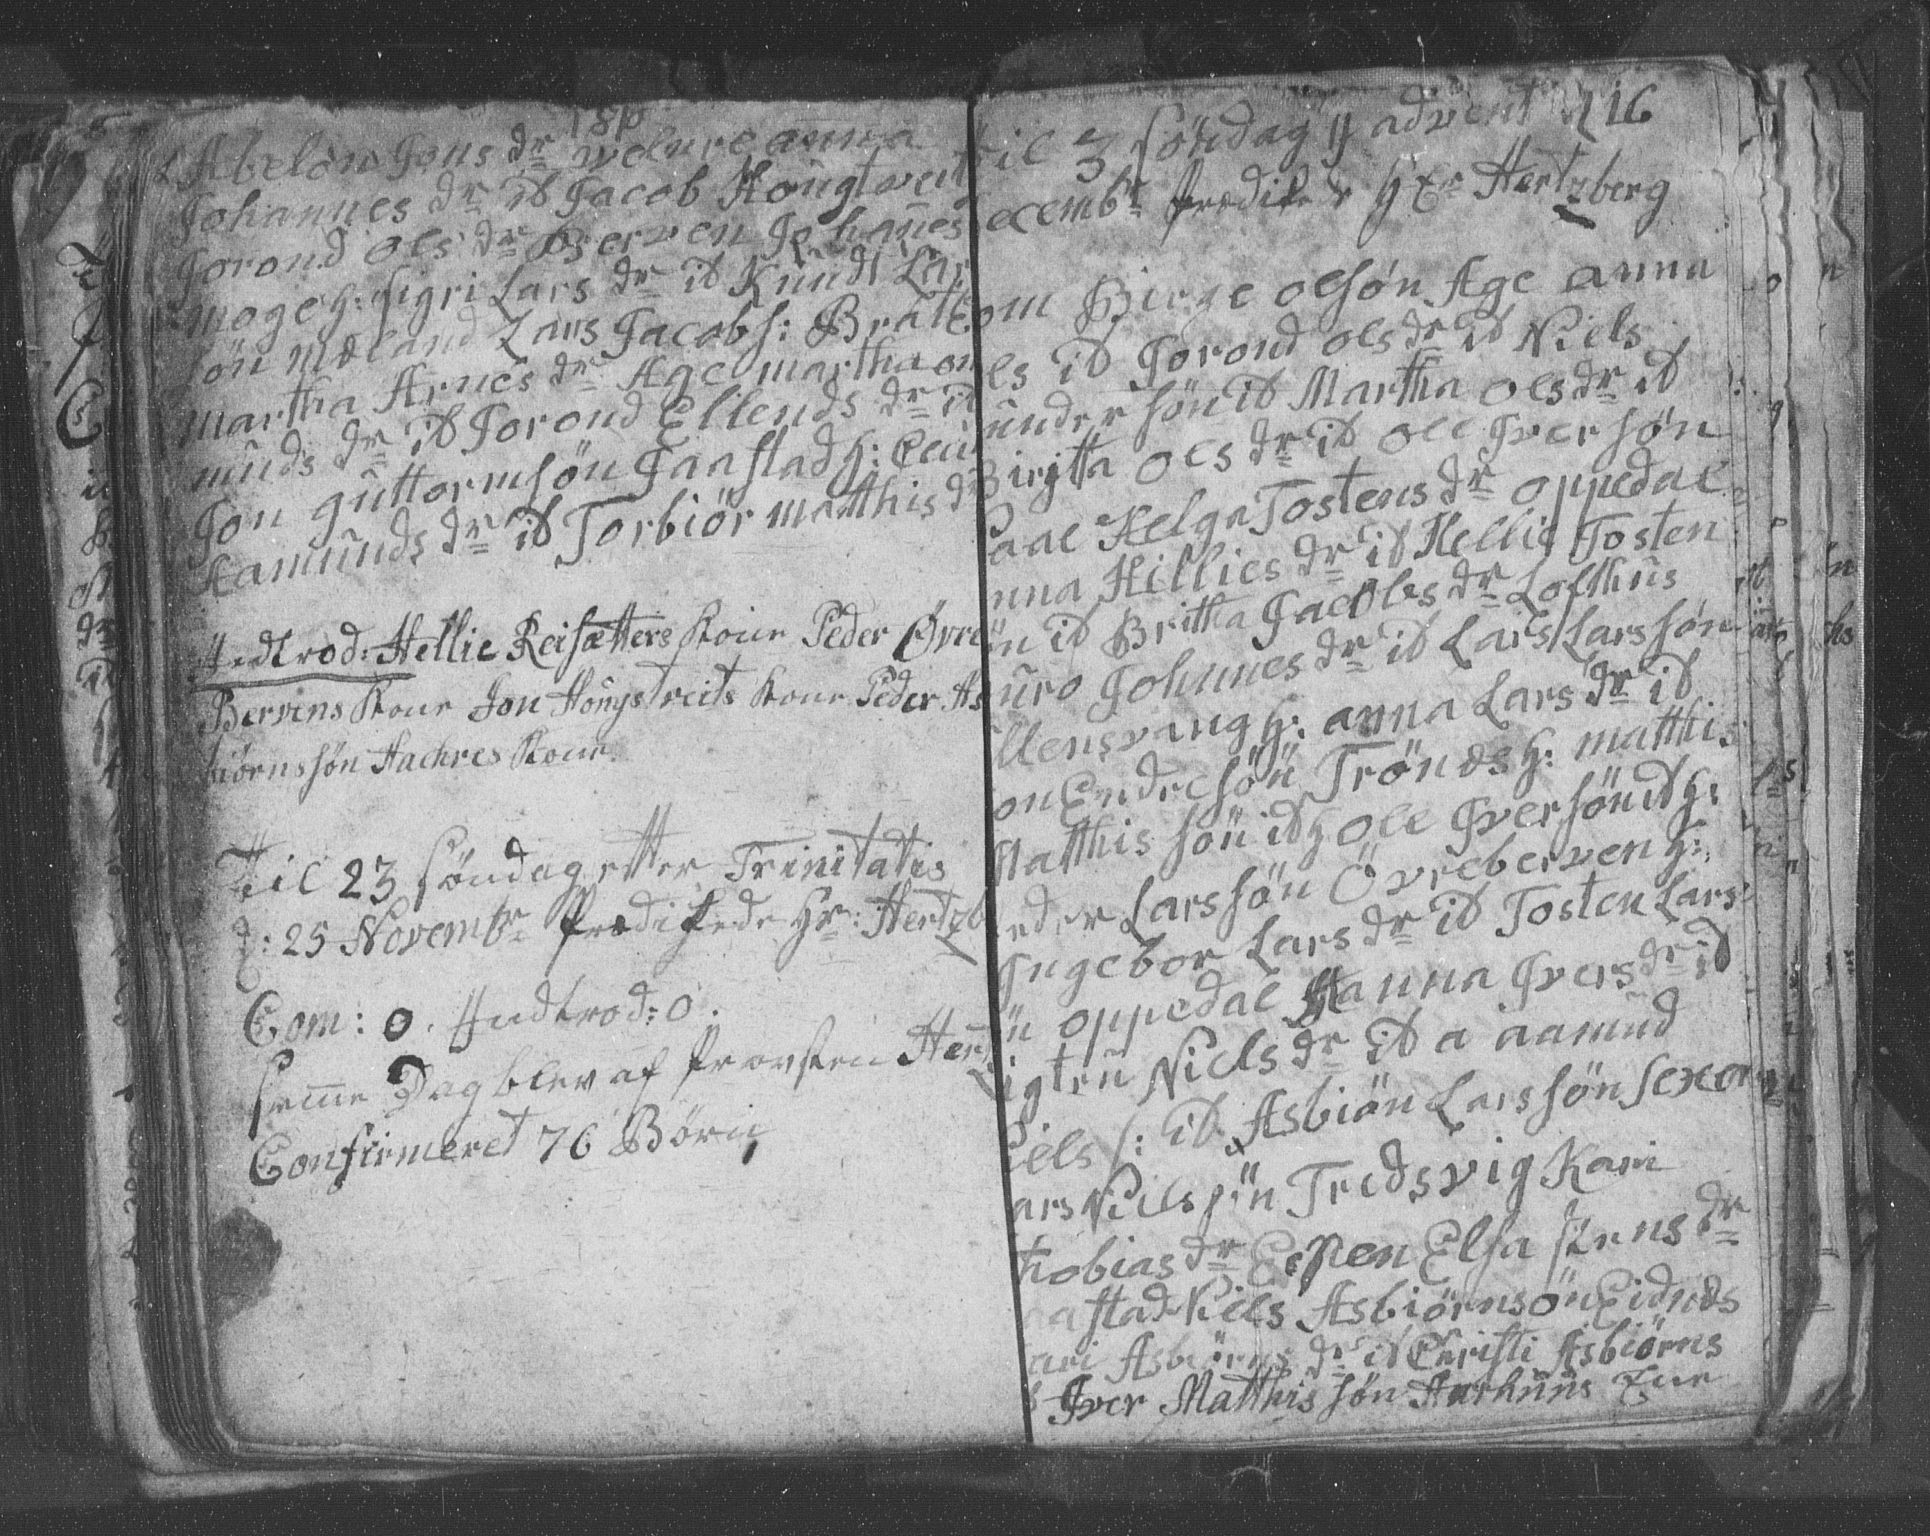 Abelon Jons dr Velure anna
Johannes dr it Jacob Hougtveit
Jorond ols dr Berven Johanes
moge h: sigri Lars dr it Knudt Lar
søn mæland Lars Jacobs: Bratte
martha Arnes dr Age martha om
munds dr it Jorond Ellends dr it
Jon guttormsøn Jaastad h:
Aamunds dr it Torbiør matthis dr
Indtrod: Hellie Reisætters Kone Peder Øvre
Bervens Kone Jon Hougstveits Kone Peder As
biørnssøn Hachres Kone
Til 23 søndag etter Trinitatis
d: 25 Novembr Prædikede Hr: Hertzb
Com: 0. Indtrod: 0.
samme Dag blev af Provsten
Confirmeret 76 Børn
til 3 søndag y advent 16
ecembr Prædikede Hr Hertzberg
om Birge olsøn Age anna
ls it Jorond ols dr it Niels
undersøn it Martha ols dr it
Biritta ols dr it ole Iversøn
aal Helga Tostens dr oppedal
nna Hillies dr it Hellie Tosten
øn it Britha Jacobs dr Lofthus
uro Johnnes dr it Lars Larssøn
llensvang h: anna Lars dr it
on Endresøn Trönæs h: matthis
Matthis søn it h ole Iversøn it h:
eder Larssøn Övreberven h:
Ingebor Lars dr it Tosten Lars
ün oppedal Hanna Ivers dr it
igten Niels dr it a aamud
iels s: it Asbiön Larssøn sexe
ars Nielssøn Tredsvig Kari
thobias dr Espen Elsa stens dr
aastad Niels Asbiørnsøn Eidnæs
ari Asbiørns dr it Christi Asbiørns
Iver Matthissøn Aarhuus